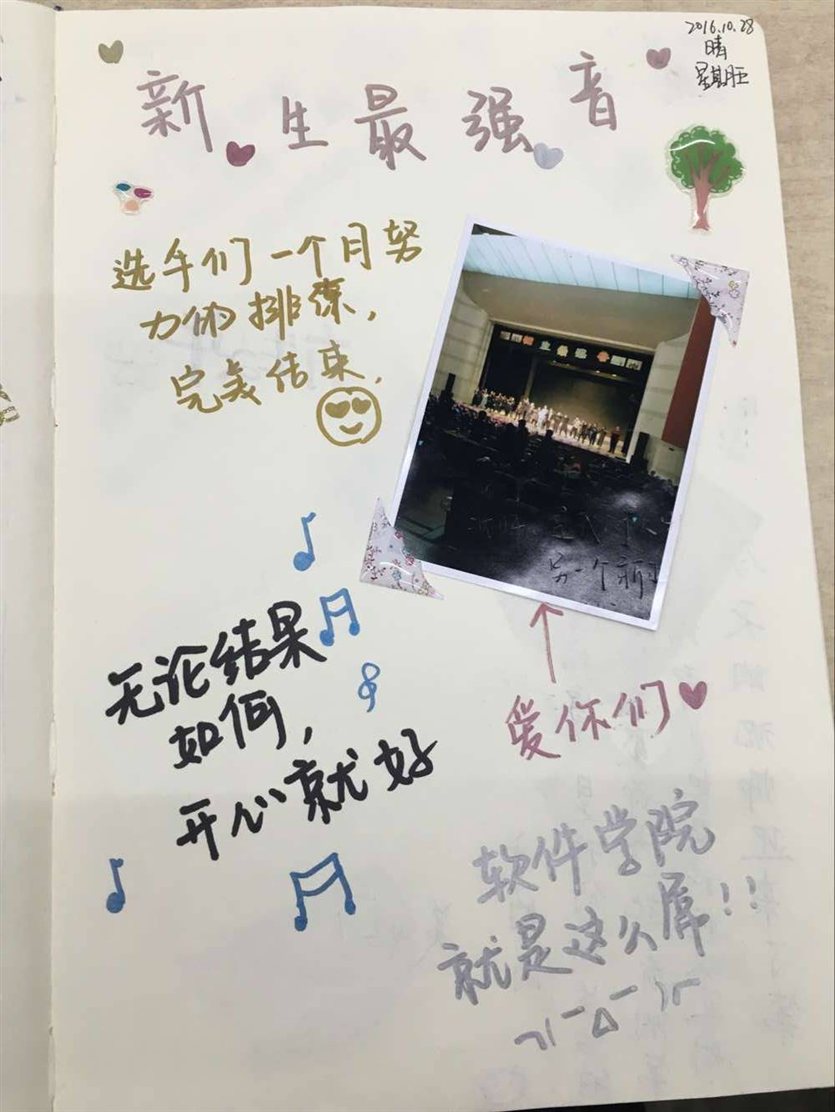 2016.10.28
晴
星期五
新生最强音
选手们一个月努
力的排练,
完美结束.
无论结果
如何,
开心就好
爱你们
软件学院
就是这么屌!!
另一个新